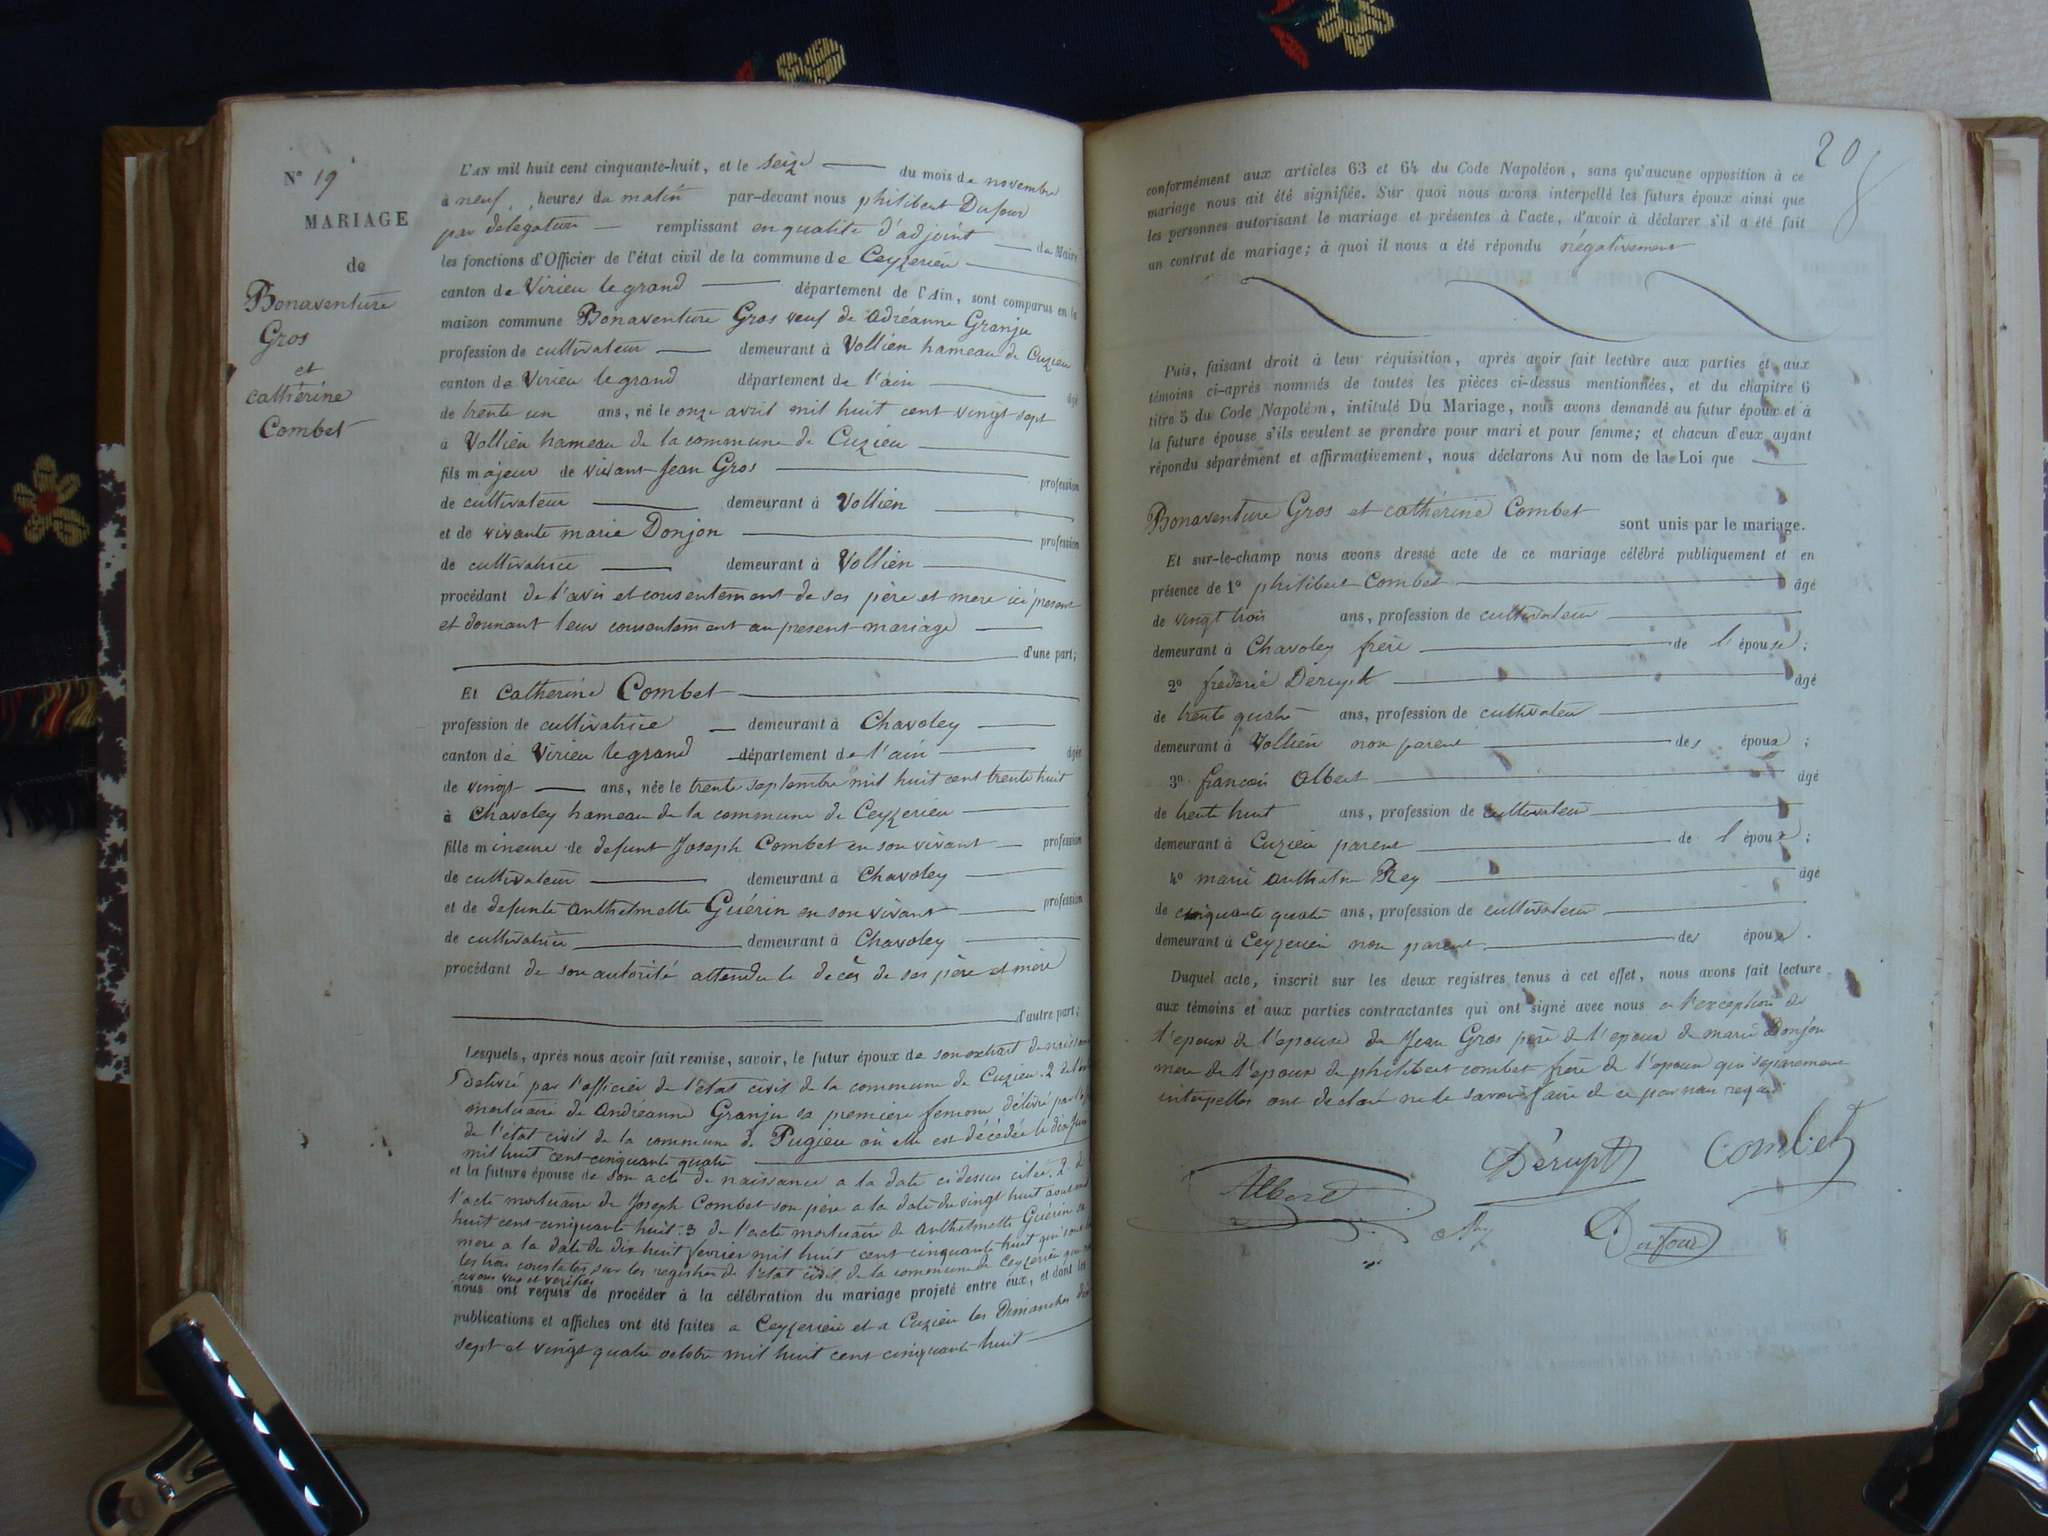 N° 19
MARIAGE
de
Bonaventure
Gros
et
cathérine
Combet
L'AN mil huit cent cinquante-huit, et le seize du mois de novembre
à neuf heures du matin par-devant nous philibert Dufour
par delegation remplissant en qualité d'adjoint du Maire
les fonctions d'Officier de l'état civil de la commune de Ceyzerieu
canton de Virieu le grand département de l'Ain, sont comparus en la
maison commune Bonaventure Gros veuf de Adréanne Granju
profession de cultivateur demeurant à Vollien hameau de Cuzieu
canton de Virieu le grand département de l'ain âgé
de trente un ans, né le onze avril mil huit cent vingt sept
à Vollien hameau de la commune de Cuzieu
fils majeur de vivant Jean Gros profession
de cultivateur demeurant à Vollien
et de vivante marie Donjon profession
de cultivatrice demeurant à Vollien
procédant de l'avis et consentement de ses père et mere ici présent
et donnant leur consentement au present mariage
d'une part;
Et Catherine Combet
profession de cultivatrice demeurant à Chavoley
canton de Virieu le grand département de l'ain âgée
de vingt ans, née le trente septembre mil huit cent trente huit
à Chavoley hameau de la commune de Ceyzerieu
fille mineure de defunt Joseph Combet en son vivant profession
de cultivateur demeurant à Chavoley
et de defunte anthelmette Guérin en son vivant profession
de cultivatrice demeurant à Chavoley
procédant de son autorité attendu le décès de ses père et mère
d'autre part;
Lesquels, après nous avoir fait remise, savoir, le futur époux de son extrait de naissance
delivré par l'officier de l'état civil de la commune de Cuzieu. 2 de
mortuaire de Andréanne Granju sa premiere femme délivré par
de l'état civil de la commune de Pugieu où elle est décédée le dix
mil huit cent cinquante quatre
et la future épouse de son acte de naissance a la date cidessus citée. 2 de
l'acte mortuaire de Joseph Combet son père a la date du vingt huit aout mil
huit cent cinquante huit. 3 de l'acte mortuaire de anthelmette Guérin sa
mere a la date du dix huit fevrier mil huit cent cinquante huit qui sont
les trois constatés sur les registres de l'état civil de la commune de Ceyzerieu que nous
avons vus et vérifiés
nous ont requis de procéder à la célébration du mariage projeté entre eux, et dont les
publications et affiches ont été faites a Ceyzerieu et a Cuzieu les Dimanches dix
sept et vingt quatre octobre mil huit cent cinquante huit
20
conformément aux articles 63 et 64 du Code Napoléon, sans qu'aucune opposition à ce
mariage nous ait été signifiée. Sur quoi nous avons interpellé les futurs époux ainsi que
les personnes autorisant le mariage et présentes à l'acte, d'avoir à déclarer s'il a été fait
un contrat de mariage; à quoi il nous a été répondu négativement
Puis, faisant droit à leur réquisition, après avoir fait lecture aux parties et aux
témoins ci-après nommés de toutes les pièces ci-dessus mentionnées, et du chapitre 6
titre 5 du Code Napoléon, intitulé Du Mariage, nous avons demandé au futur époux et à
la future épouse s'ils veulent se prendre pour mari et pour femme; et chacun d'eux ayant
répondu séparément et affirmativement, nous déclarons Au nom de la Loi que
Bonaventure Gros et cathérine Combet
sont unis par le mariage.
Et sur-le-champ nous avons dressé acte de ce mariage célébré publiquement et en
présence de 1° philibert Combet âgé
de vingt trois ans, profession de cultivateur
demeurant à Chavoley frère de l'épouse;
2° frederic Dérupt âgé
de trente quatre ans, profession de cultivateur
demeurant à Vollien non parent des époux;
3° francois Albert âgé
de trente huit ans, profession de cultivateur
demeurant à Cuzieu parent de l'époux;
4° marie anthelme Rey âgé
de cinquante quatre ans, profession de cultivateur
demeurant à Ceyzerieu non parent des époux.
Duquel acte, inscrit sur les deux registres tenus à cet effet, nous avons fait lecture
aux témoins et aux parties contractantes qui ont signé avec nous a l'exception de
l'epoux de l'epouse de Jean Gros père de l'epoux de marie Donjon
mere de l'epoux de philibert combet frere de l'epoux qui séparement
interpellés ont declaré ne le savoir faire de ce par nous requis
Albert
Dérupt
Combet
Rey
Dufour